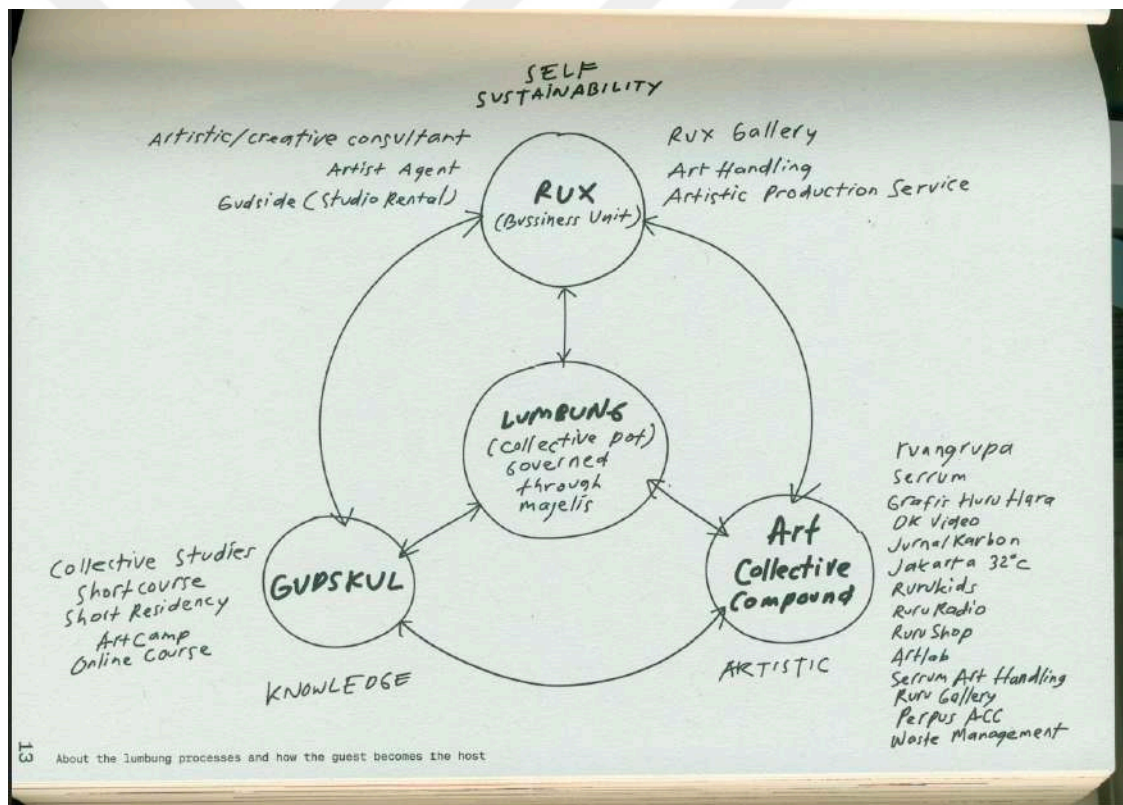 SELF
SUSTAINABILITY
Artistic/creative consultant
Artist Agent
Gudside (Studio Rental)
RUX
(Bussiness Unit)
RUX Gallery
Art Handling
Artistic Production Service
LUMBUNG
(collective pot)
Governed
through
majelis
GUDSKUL
Collective Studies
Short course
Short Residency
Art Camp
Online Course
KNOWLEDGE
Art
Collective
Compound
ARTISTIC
ruangrupa
Serrum
Grafis Huru Hara
OK Video
Jurnal Karbon
Jakarta 32°c
Rurukids
Ruru Radio
Ruru Shop
Artlab
Serrum Art Handling
Ruru Gallery
Perpus ACC
Waste Management
13
About the lumbung processes and how the guest becomes the host